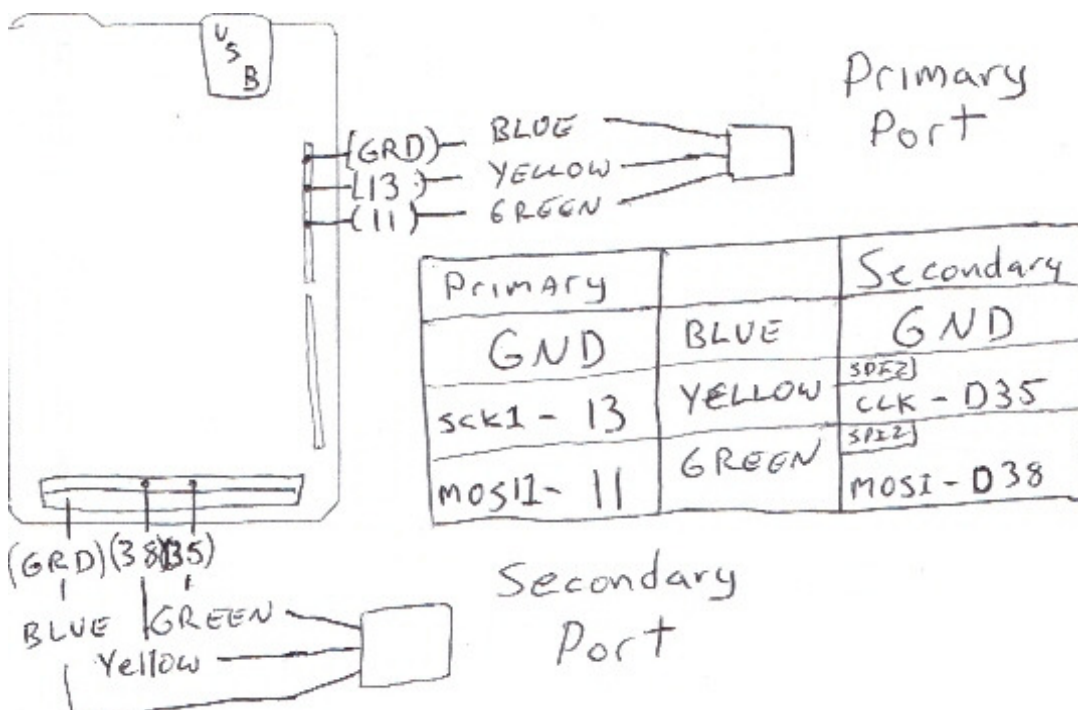 USB
Primary
Port
(GRD) BLUE
(13) YELLOW
(11) GREEN
Primary Secondary
GND BLUE GND
SCK1 - 13 YELLOW SPI2 CLK - D35
MOSI1 - 11 GREEN SPI2 MOSI - D38
(GRD) (38) (35)
BLUE GREEN
Yellow
Secondary
Port